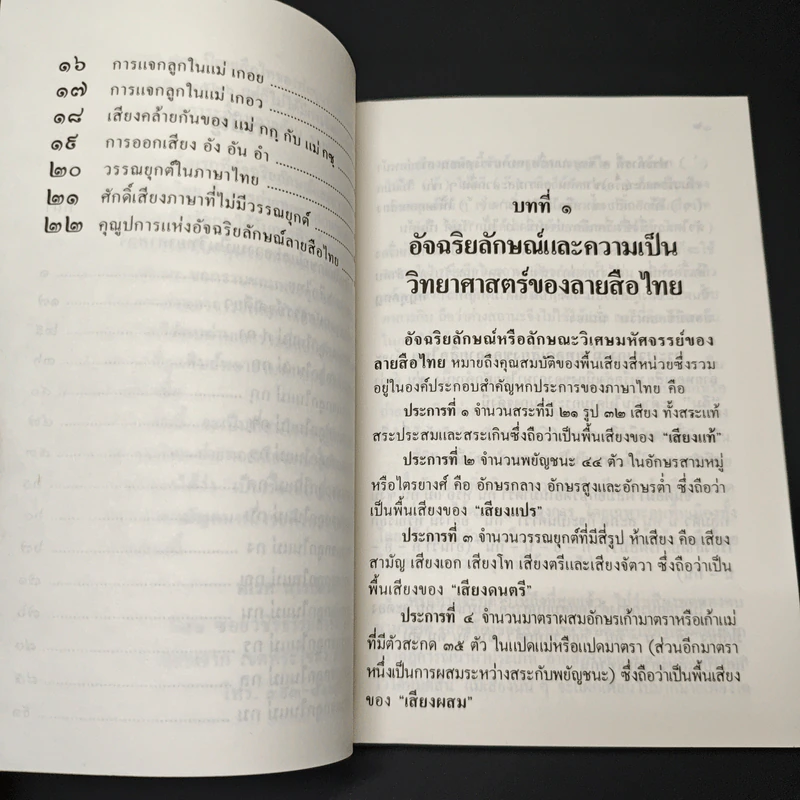 ๑๖ การแจกลูกในแม่ เกอย
๑๗ การแจกลูกในแม่ เกอว
๑๘ เสียงคล้ายกันของ แม่ กกุ กับ แม่ กชุ
๑๙ การออกเสียง อัง อัน อำ
๒๐ วรรณยุกต์ในภาษาไทย
๒๑ ศักดิ์เสียงภาษาที่ไม่มีวรรณยุกต์
๒๒ คุณูปการแห่งอัจฉริยลักษณ์ลายสือไทย
บทที่ ๑
อัจฉริยลักษณ์และความเป็น
วิทยาศาสตร์ของลายสือไทย
อัจฉริยลักษณ์หรือลักษณะวิเศษมหัศจรรย์ของ
ลายสือไทย หมายถึงคุณสมบัติของพื้นเสียงสี่หน่วยซึ่งรวม
อยู่ในองค์ประกอบสำคัญหกประการของภาษาไทย คือ
ประการที่ ๑ จำนวนสระที่มี ๒๑ รูป ๓๒ เสียง ทั้งสระแท้
สระประสมและสระเกินซึ่งถือว่าเป็นพื้นเสียงของ "เสียงแท้"
ประการที่ ๒ จำนวนพยัญชนะ ๔๔ ตัว ในอักษรสามหมู่
หรือไตรยางศ์ คือ อักษรกลาง อักษรสูงและอักษรต่ำ ซึ่งถือว่า
เป็นพื้นเสียงของ "เสียงแปร"
ประการที่ ๓ จำนวนวรรณยุกต์ที่มีสี่รูป ห้าเสียง คือ เสียง
สามัญ เสียงเอก เสียงโท เสียงตรีและเสียงจัตวา ซึ่งถือว่าเป็น
พื้นเสียงของ "เสียงดนตรี"
ประการที่ ๔ จำนวนมาตราผสมอักษรเก้ามาตราหรือเก้าแม่
ที่มีตัวสะกด ๓๕ ตัว ในแปดแม่หรือแปดมาตรา (ส่วนอีกมาตรา
หนึ่งเป็นการผสมระหว่างสระกับพยัญชนะ) ซึ่งถือว่าเป็นพื้นเสียง
ของ "เสียงผสม"